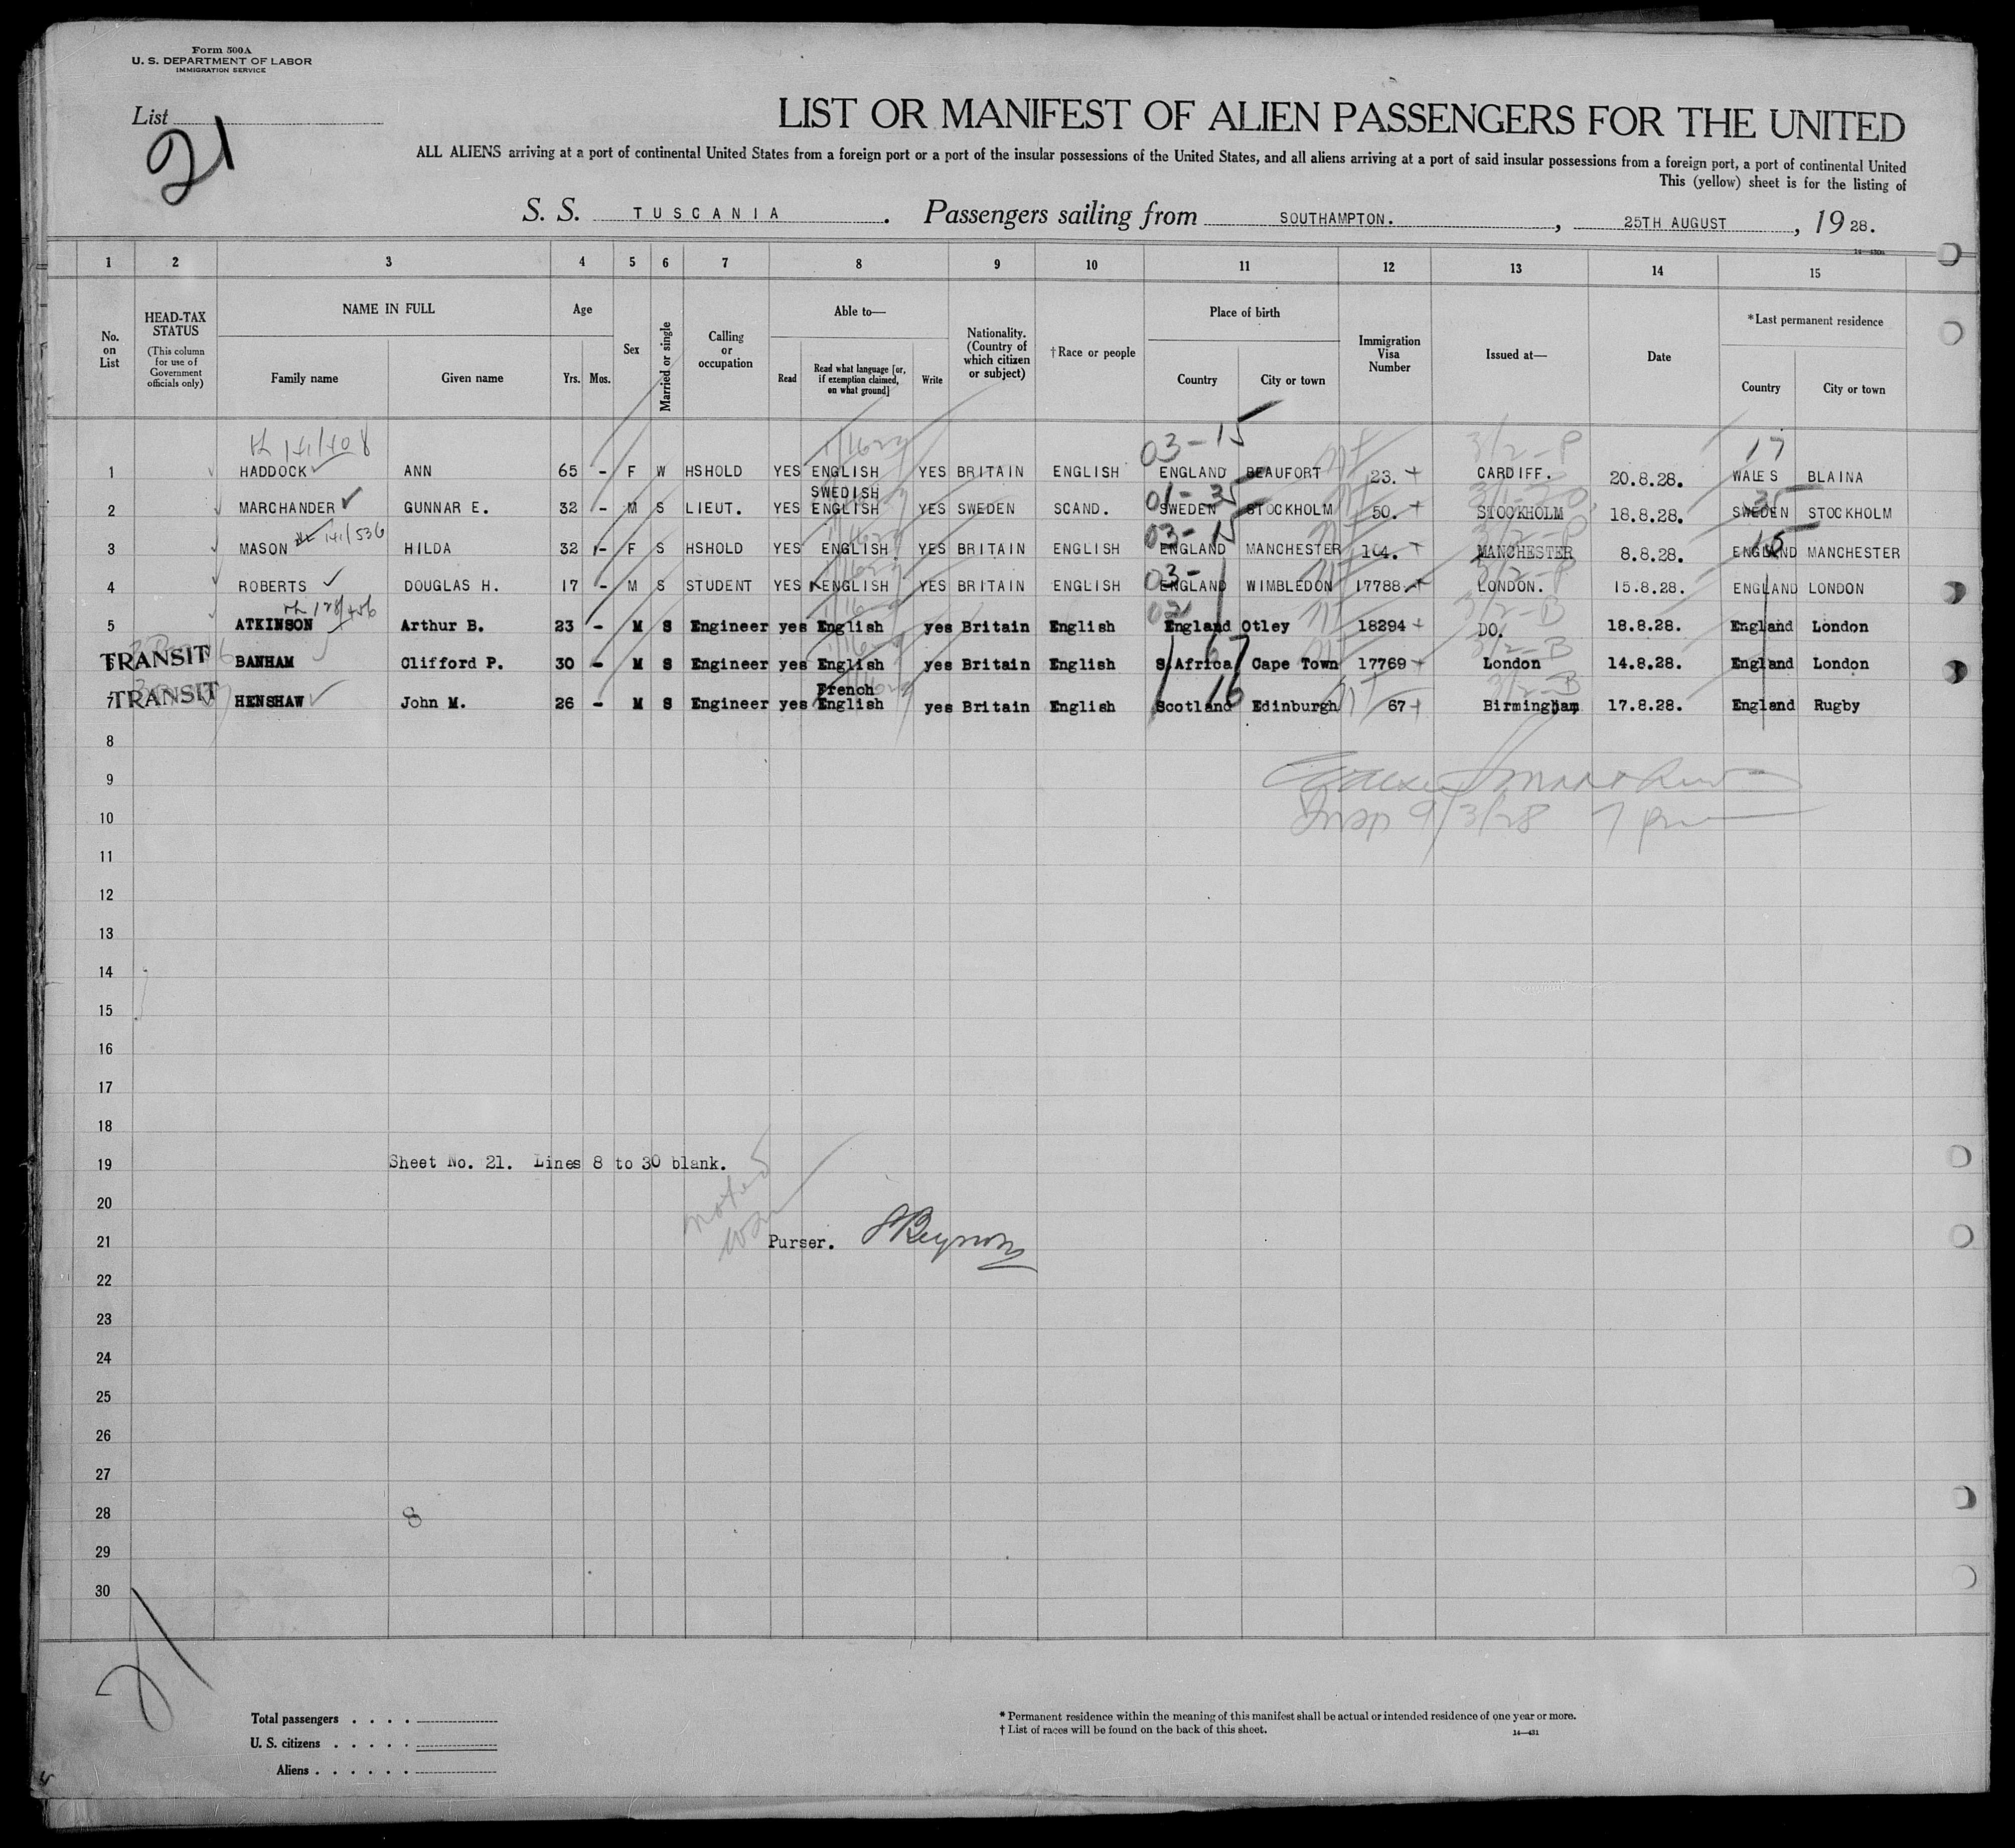 Form 500A
U. S. DEPARTMENT OF LABOR
IMMIGRATION SERVICE
List
21
LIST OR MANIFEST OF ALIEN PASSENGERS FOR THE UNITED
ALL ALIENS arriving at a port of continental United States from a foreign port or a port of the insular possessions of the United States, and all aliens arriving at a port of said insular possessions from a foreign port, a port of continental United
This (yellow) sheet is for the listing of
S. S. TUSCANIA . Passengers sailing from SOUTHAMPTON. , 25TH AUGUST , 19 28.
1 2 3 4 5 6 7 8 9 10 11 12 13 14 15
No. on List
HEAD-TAX STATUS
(This column for use of Government officials only)
NAME IN FULL
Family name Given name
Age
Yrs. Mos.
Sex
Married or single
Calling or occupation
Able to—
Read
Read what language [or, if exemption claimed, on what ground]
Write
Nationality. (Country of which citizen or subject)
†Race or people
Place of birth
Country City or town
Immigration Visa Number
Issued at—
Date
*Last permanent residence
Country City or town
141/408 03-15 3/2-P 17
1 HADDOCK ANN 65 - F W HSHOLD YES ENGLISH YES BRITAIN ENGLISH ENGLAND BEAUFORT 23. CARDIFF. 20.8.28. WALES BLAINA
SWEDISH
01-35 35
2 MARCHANDER GUNNAR E. 32 - M S LIEUT. YES ENGLISH YES SWEDEN SCAND. SWEDEN STOCKHOLM 50. STOCKHOLM 18.8.28. SWEDEN STOCKHOLM
141/536 03-15 15
3 MASON HILDA 32 - F S HSHOLD YES ENGLISH YES BRITAIN ENGLISH ENGLAND MANCHESTER 104. MANCHESTER 8.8.28. ENGLAND MANCHESTER
03-
4 ROBERTS DOUGLAS H. 17 - M S STUDENT YES ENGLISH YES BRITAIN ENGLISH ENGLAND WIMBLEDON 17788 LONDON. 15.8.28. ENGLAND LONDON
128/456 3/2-B
5 ATKINSON Arthur B. 23 - M S Engineer yes English yes Britain English England Otley 18294 DO. 18.8.28. England London
3/2-B
TRANSIT BANHAM Clifford P. 30 - M S Engineer yes English yes Britain English S.Africa Cape Town 17769 London 14.8.28. England London
French
16 3/2-B
7 TRANSIT HENSHAW John M. 26 - M S Engineer yes English yes Britain English Scotland Edinburgh 67 Birmingham 17.8.28. England Rugby
8
9
10 Insp 9/3/28
11
12
13
14
15
16
17
18
19 Sheet No. 21. Lines 8 to 30 blank.
noted
20
21 Purser.
22
23
24
25
26
27
28 8
29
30
21
Total passengers . . . .
U. S. citizens . . . . .
Aliens . . . . . .
* Permanent residence within the meaning of this manifest shall be actual or intended residence of one year or more.
† List of races will be found on the back of this sheet.
14—431